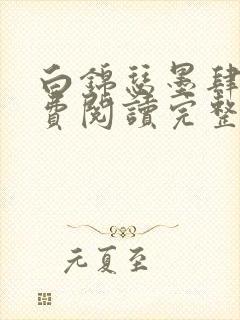 白錦瑟墨肆
費閱讀完整
元夏至